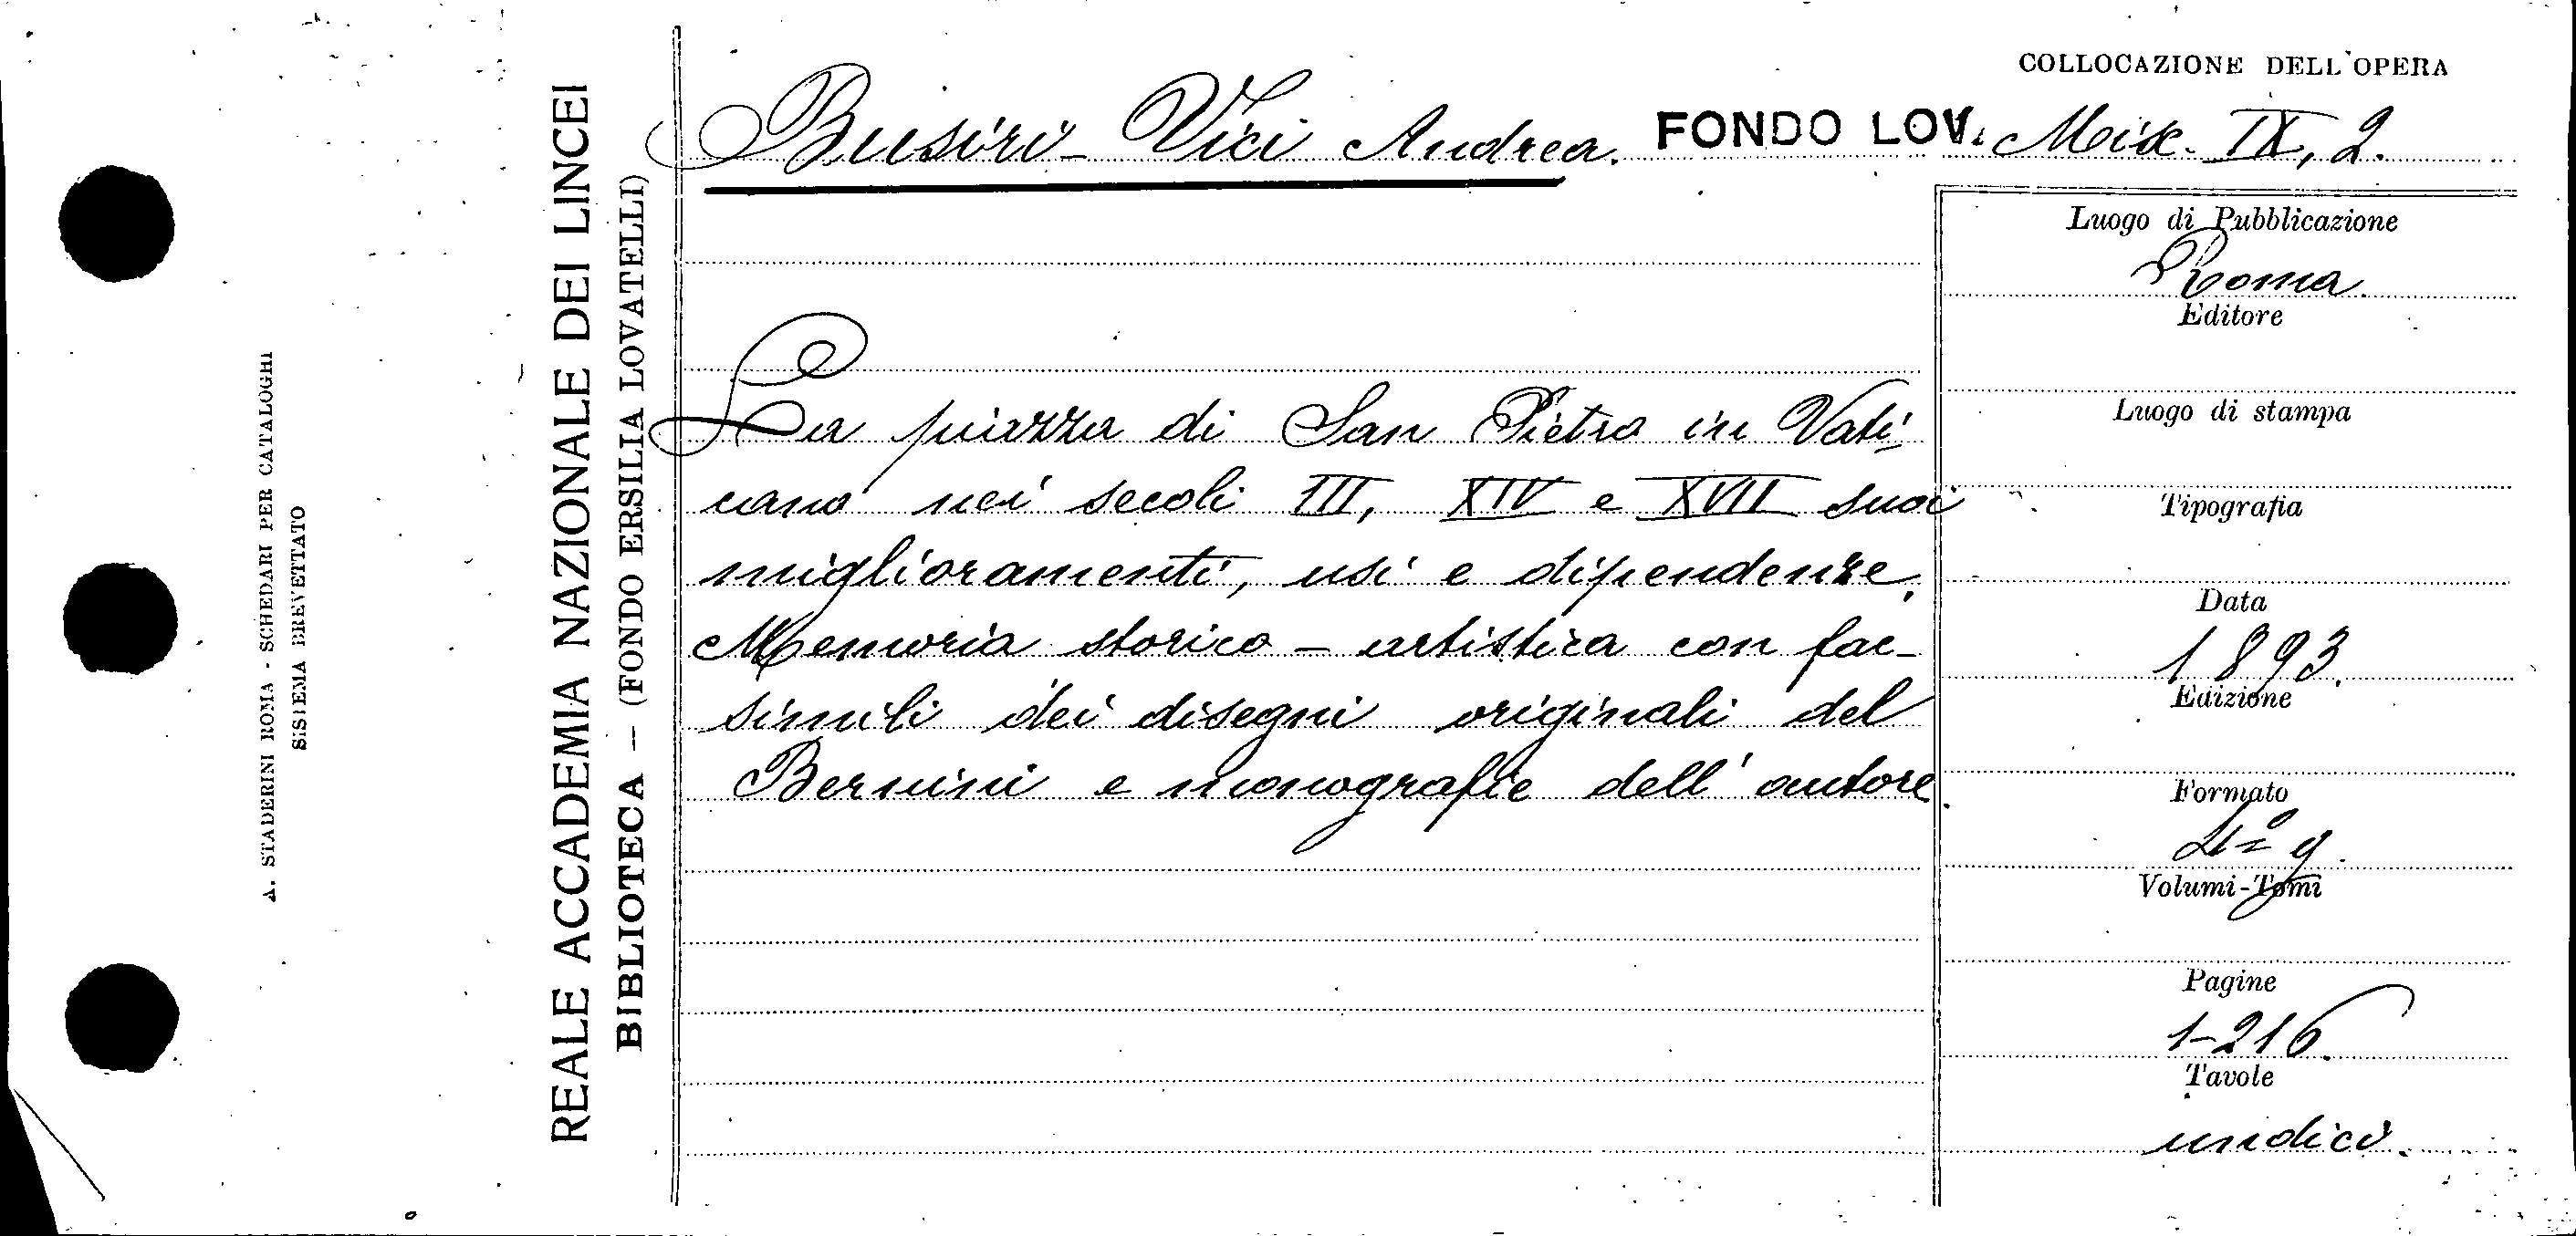 A. STADERINI ROMA - SCHEDARI PER CATALOGHI
SISTEMA BREVETTATO
REALE ACCADEMIA NAZIONALE DEI LINCEI
BIBLIOTECA — (FONDO ERSILIA LOVATELLI)
COLLOCAZIONE DELL'OPERA
Busiri-Vici Andrea. FONDO LOV. Misc. IX, 2.
La piazza di San Pietro in Vati
cano nei secoli III, XIV e XVII suoi
miglioramenti, usi e dipendenze.
Memoria storico - artistica con fac-
simili dei disegni originali del
Bernini e monografie dell'autore.
Luogo di Pubblicazione
Roma
Editore
Luogo di stampa
Tipografia
Data
1893.
Edizione
Formato
4º g.
Volumi-Tomi
Pagine
1-216.
Tavole
undici.